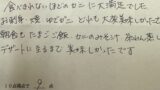 食べきれないほどのカニに大満足でした
お刺身 焼 ゆでガニ どれも大変美味しかったで
朝食も たまご、豚 カニのみそ汁 茶わん蒸し
デザートに至るまで 美味しかったです
10点満点で 9 点